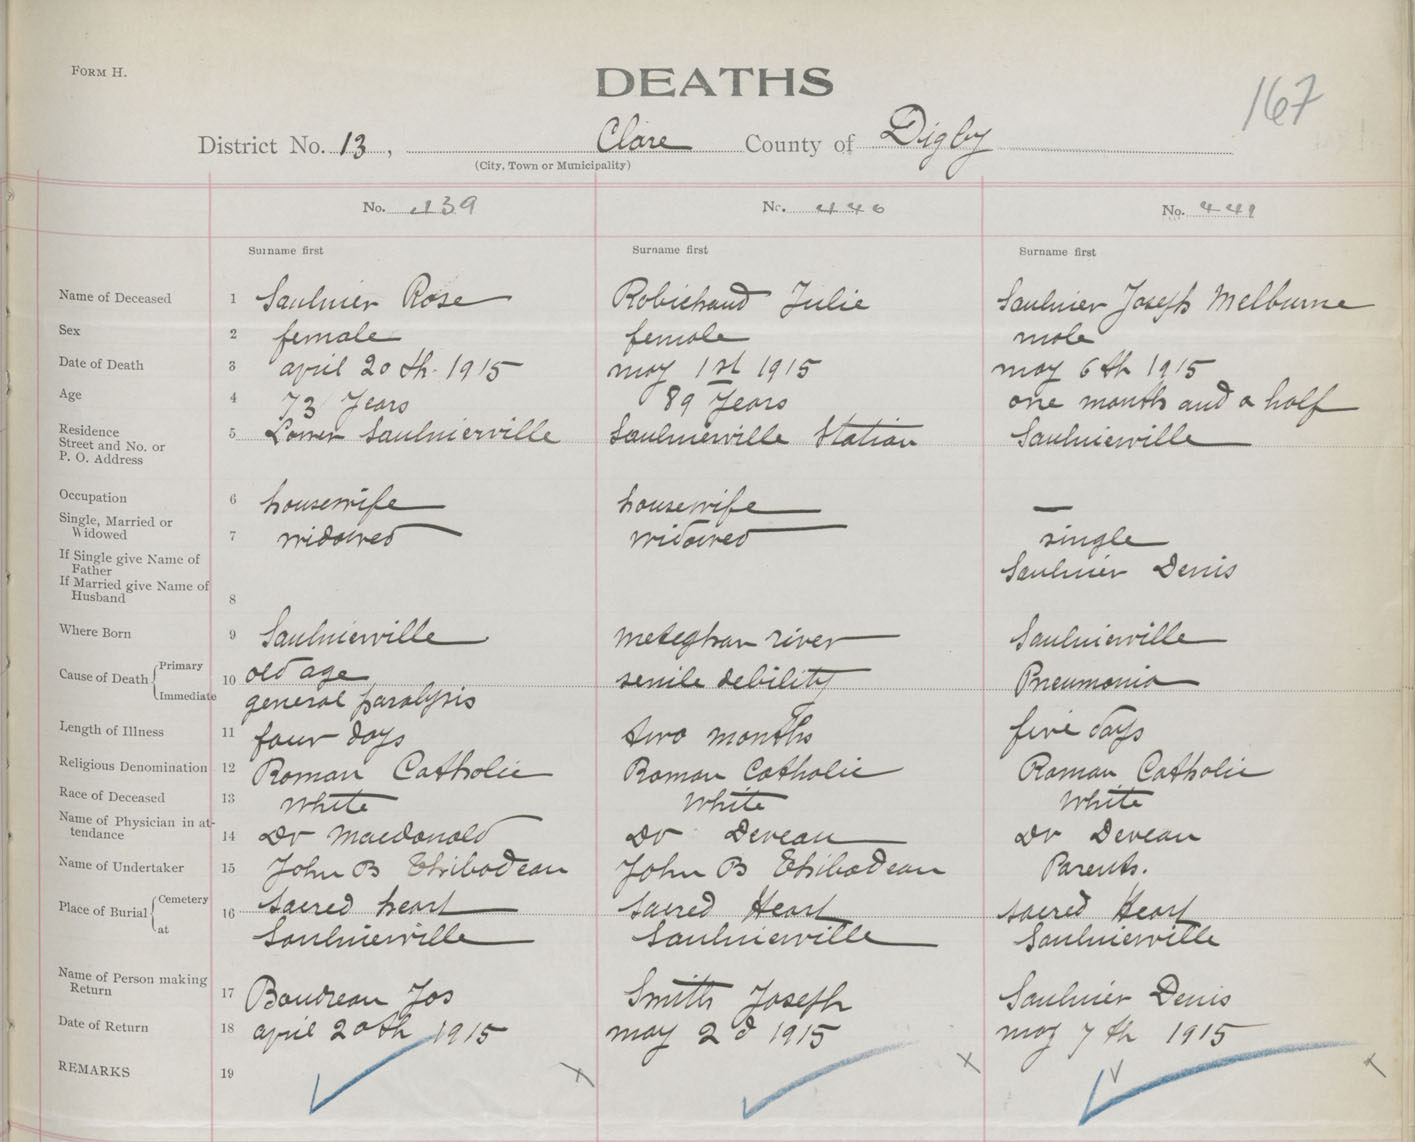 FORM H.
DEATHS
167
District No. 13, Clare County of Digby
(City, Town or Municipality)
No. 439 No. 440 No. 441
Surname first Surname first Surname first
Name of Deceased 1 Saulnier Rose Robichaud Julie Saulnier Joseph Melburne
Sex 2 female female male
Date of Death 3 april 20th 1915 may 1st 1915 may 6th 1915
Age 4 73 Years 89 Years one month and a half
Residence Street and No. or P. O. Address 5 Lower Saulnierville Saulnierville Station Saulnierville
Occupation 6 housewife housewife —
Single, Married or Widowed 7 widowed widowed single
If Single give Name of Father Saulnier Denis
If Married give Name of Husband 8
Where Born 9 Saulnierville meteghan river Saulnierville
Cause of Death { Primary 10 old age senile debility Pneumonia
Immediate general paralysis
Length of Illness 11 four days two months five days
Religious Denomination 12 Roman Catholic Roman Catholic Roman Catholic
Race of Deceased 13 White White White
Name of Physician in attendance 14 Dr macdonald Dr Deveau Dr Deveau
Name of Undertaker 15 John B Thibodeau John B Thibodeau Parents.
Place of Burial { Cemetery 16 sacred heart sacred Heart sacred Heart
at Saulnierville Saulnierville Saulnierville
Name of Person making Return 17 Boudreau Jos Smith Joseph Saulnier Denis
Date of Return 18 april 20th 1915 may 2d 1915 may 7th 1915
REMARKS 19